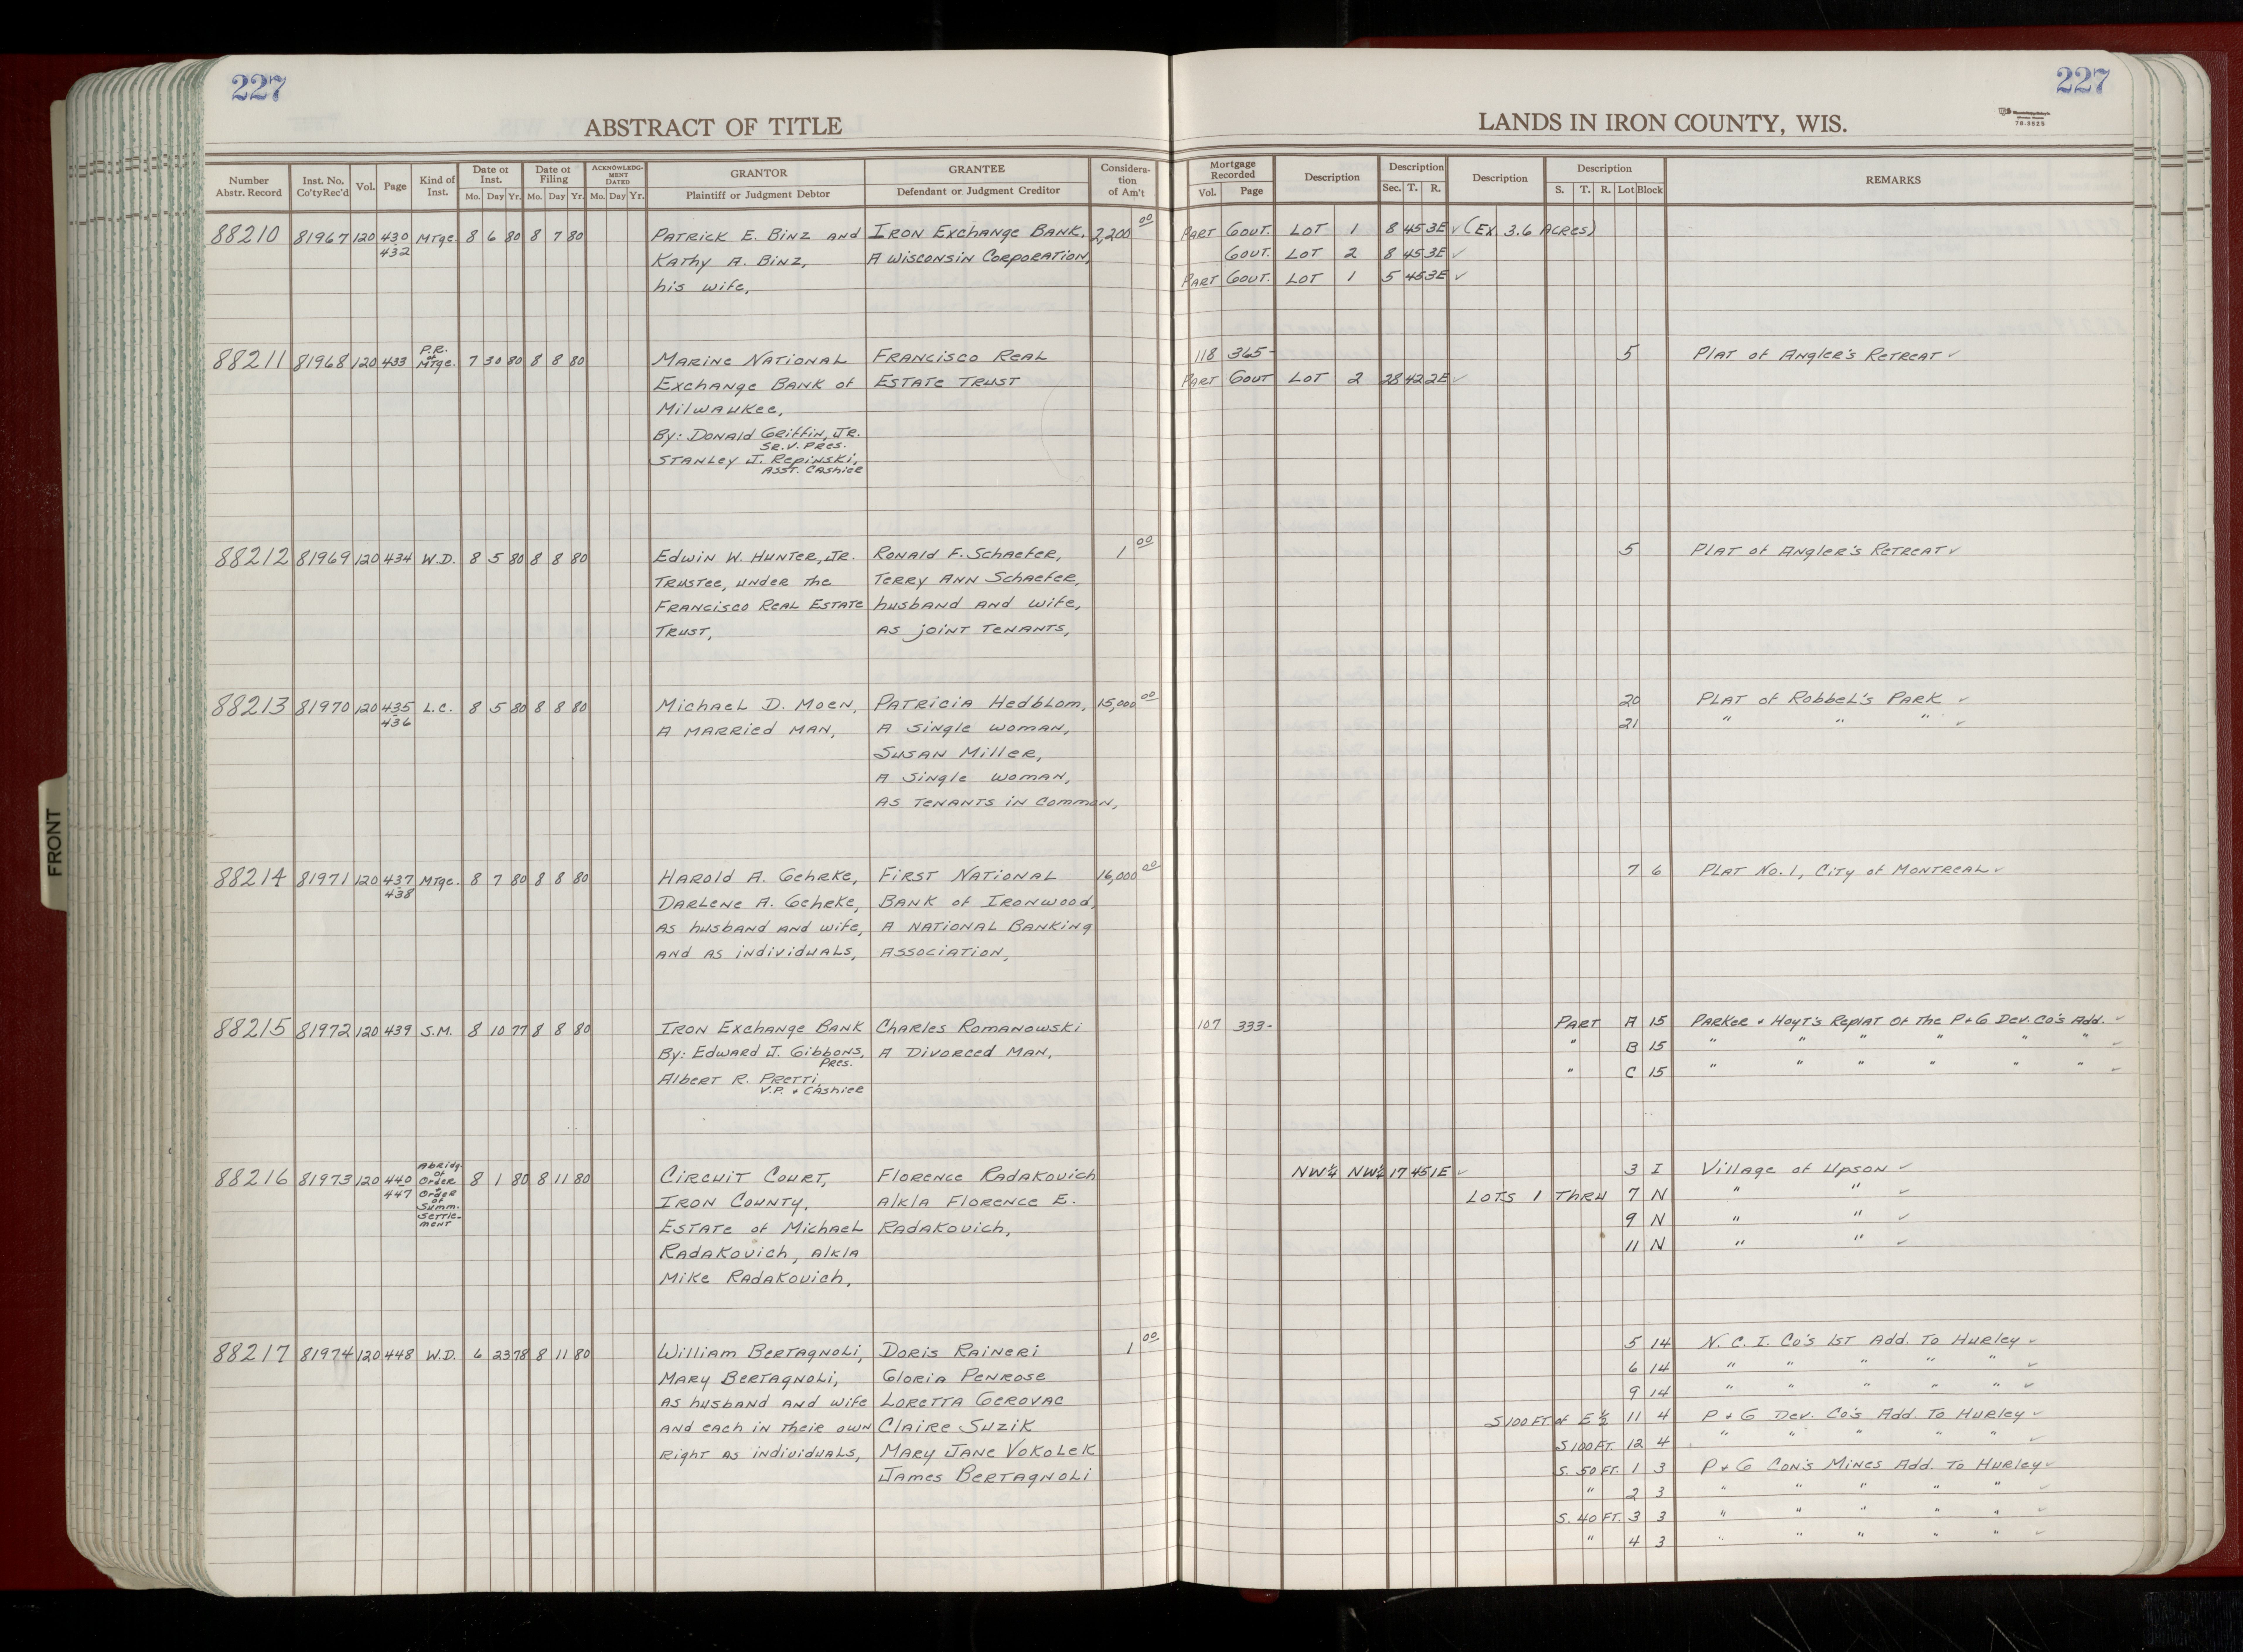 227
227
ABSTRACT OF TITLE
LANDS IN IRON COUNTY, WIS.
76-3525
Number Abstr. Record | Inst. No. Co'ty Rec'd | Vol. | Page | Kind of Inst. | Date of Inst. Mo. Day Yr. | Date of Filing Mo. Day Yr. | ACKNOWLEDGMENT DATED Mo. Day Yr. | GRANTOR Plaintiff or Judgment Debtor | GRANTEE Defendant or Judgment Creditor | Consideration of Am't | Mortgage Recorded Vol. Page | Description | Description Sec. T. R. | Description | Description S. T. R. Lot Block | REMARKS
88210 81967 120 430 Mtge. 8 6 80 8 7 80 Patrick E. Binz and Iron Exchange Bank, 2,200 00 Part Gout. Lot 1 8 45 3E ✓ (Ex 3.6 Acres)
432 Kathy A. Binz, A Wisconsin Corporation, Gout. Lot 2 8 45 3E ✓
his wife, Part Gout. Lot 1 5 45 3E ✓
88211 81968 120 433 P.R. of Mtge. 7 30 80 8 8 80 Marine National Francisco Real 118 365- 5 Plat of Angler's Retreat ✓
Exchange Bank of Estate Trust Part Gout Lot 2 28 42 2E ✓
Milwaukee,
By: Donald Griffin, Jr.
Sr. V. Pres.
Stanley J. Repinski,
Asst. Cashier
88212 81969 120 434 W.D. 8 5 80 8 8 80 Edwin W. Hunter, Jr. Ronald F. Schaefer, 1 00 5 Plat of Angler's Retreat ✓
Trustee, under the Terry Ann Schaefer,
Francisco Real Estate husband and wife,
Trust, as joint tenants,
88213 81970 120 435 L.C. 8 5 80 8 8 80 Michael D. Moen, Patricia Hedblom, 15,000 00 20 Plat of Robbel's Park ✓
436 A married man, A single woman, 21 " " " ✓
Susan Miller,
A single woman,
as tenants in common,
88214 81971 120 437 Mtge. 8 7 80 8 8 80 Harold A. Gehrke, First National 16,000 00 7 6 Plat No. 1, City of Montreal ✓
438 Darlene A. Gehrke, Bank of Ironwood,
as husband and wife, A National Banking
and as individuals, Association,
88215 81972 120 439 S.M. 8 10 77 8 8 80 Iron Exchange Bank Charles Romanowski 107 333- Part A 15 Parker & Hoyt's Replat of the P+G Dev. Co's Add. ✓
By: Edward J. Gibbons, A Divorced Man, " B 15 " " " " " " ✓
Pres.
Albert R. Pretti, " C 15 " " " " " " ✓
V.P. & Cashier
88216 81973 120 440 Abridg. of Order & Order of Summ. Settlement 8 1 80 8 11 80 Circuit Court, Florence Radakovich NW¼ NW¼ 17 45 1E ✓ 3 I Village of Upson ✓
447 Iron County, a/k/a Florence E. Lots 1 thru 7 N " " ✓
Estate of Michael Radakovich, 9 N " " ✓
Radakovich, a/k/a 11 N " " ✓
Mike Radakovich,
88217 81974 120 448 W.D. 6 23 78 8 11 80 William Bertagnoli, Doris Raineri 1 00 5 14 N. C. I. Co's 1st Add. to Hurley ✓
Mary Bertagnoli, Gloria Penrose 6 14 " " " " " ✓
as husband and wife Loretta Gerovac 9 14 " " " " " ✓
and each in their own Claire Suzik S 100 Ft of E ½ 11 4 P+G Dev. Co's Add. to Hurley ✓
right as individuals, Mary Jane Vokolek S 100 Ft. 12 4 " " " " " ✓
James Bertagnoli S. 50 Ft. 1 3 P+G Con's Mines Add. to Hurley ✓
" 2 3 " " " " " ✓
S. 40 Ft. 3 3 " " " " " ✓
" 4 3 " " " " " ✓
FRONT